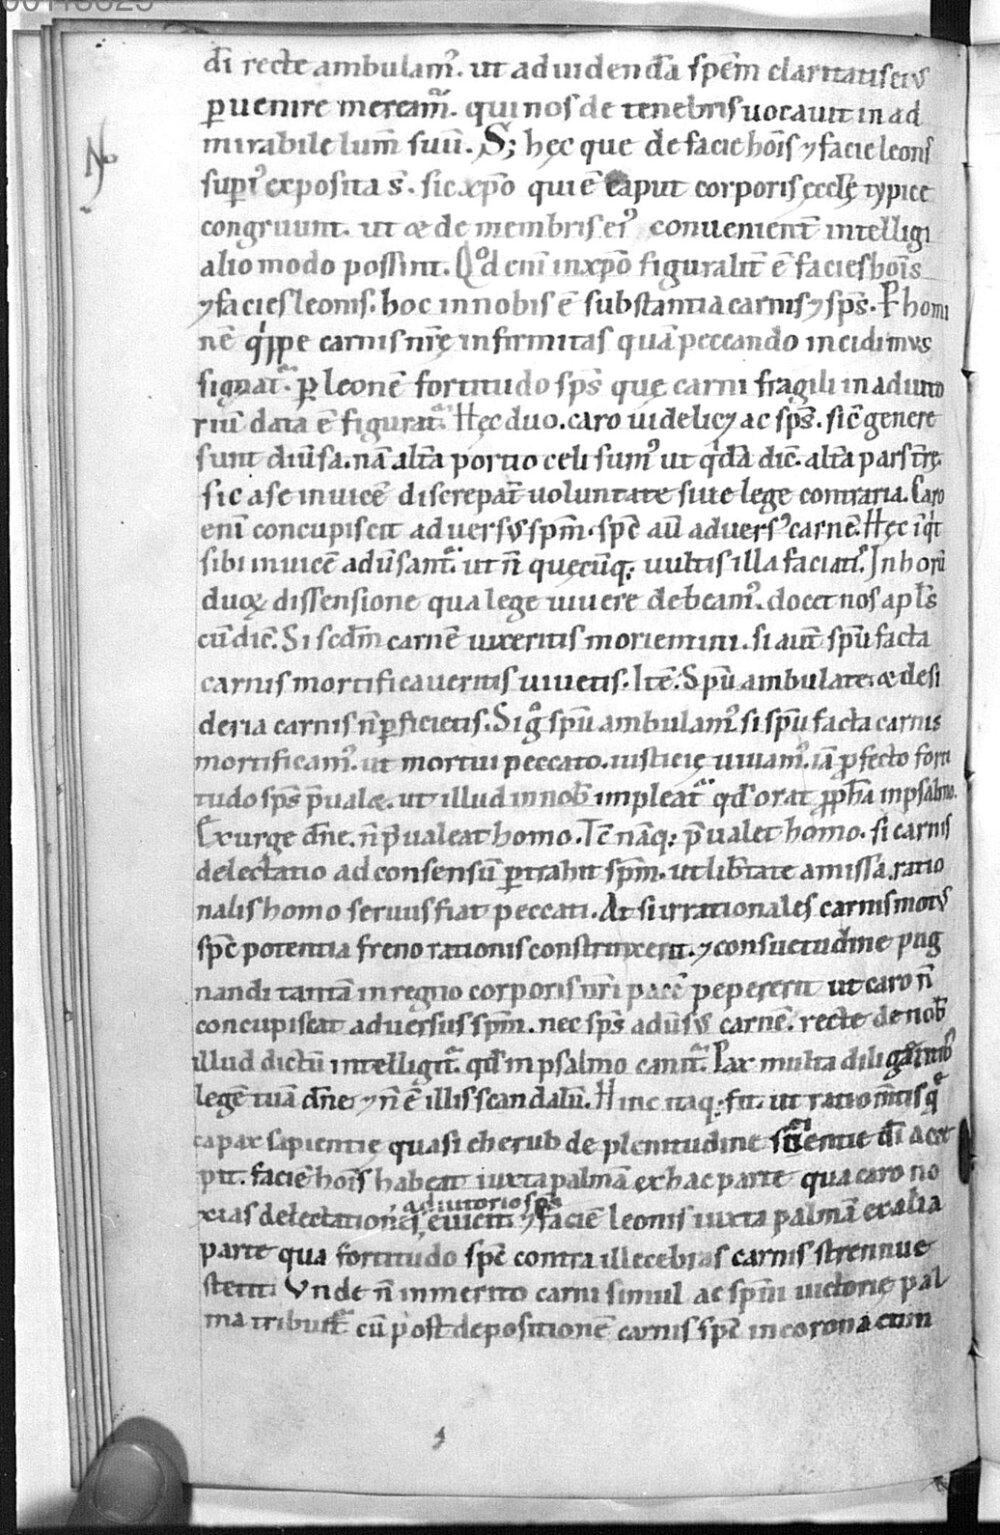 00118623
di recte ambulam᷒. ut ad uidendā spēm claritatis eiꝰ
ꝑuenire mereamᷣ. qui nos de tenebris uocauit in ad
mirabile lum̄ suū. S; hęc que de facie hōīs ⁊ facie leonis
supiꝰ exposita s̄. sic xp̄o qui ē caput corporis ęccl̄ę typice
congruunt. ut & de membris eiꝰ conuenient̄ intelligi
alio modo possint. Qᵒd eni in xp̄o figuralit̄ ē facies hoīs
⁊ facies leonis. hoc in nobis ē substantia carnis ⁊ sp̄s. P homi
nē qͥppe carnis nr̄ę infirmitas quā peccando incidimus
signatᷣ. ꝑ leonē fortitudo sp̄s quę carni fragili in adiuto
riū data ē figuratᷣ. Hęc duo. caro uidelicꝫ ac sp̄s. sic̄ genere
sunt diūsa. nā alt̄a portio celi sumꝰ ut qͥdā dic̄. alt̄a pars t̄rę.
sic a se inuicē discrepāt uoluntate siue lege contraria. Caro
enī concupiscit aduersꝰ spm̄. spc̄ aū aduersꝰ carnē. Hęc īqͥt
sibi inuicē adūsantᷣ. ut n̄ quęcūq; uultis illa faciatis. In horū
duoꝝ dissensione qua lege uiuere debeamꝰ. docet nos apl̄s
cū dic̄. Si scdm̄ carnē uixeritis moriemini. si aut̄ spū facta
carnis mortificaueritis uiuetis. Itē. Spū ambulate. & desi
deria carnis n̄ ꝑficietis. Si gͦ spū ambulamꝰ. si spū facta carnis
mortificamꝰ. ut mortui peccato. iusticię uiuamꝰ. iā ꝓfecto forti
tudo sp̄s p̄ualet. ut illud in nob̄ impleatᷣ qd̄ orat ꝓph̄a in psalmo.
Exurge dn̄e. n̄ p̄ualeat homo. Tc̄ nāq; p̄ualet homo. si carnis
delectatio ad consensū ꝑtrahit spm̄. ut lib̄tate amissa. ratio
nalis homo seruus fiat peccati. At si irrationales carnis motꝰ
spc̄ potentia freno rationis constrinxerit. ⁊ consuetudine pug
nandi tantā in regno corporis nr̄i pacē pepererit ut caro n̄
concupiscat aduersus spm̄. nec sp̄s adūsꝰ carnē. recte de nob̄
illud dictū intelligitᷣ. qd̄ in psalmo canitᷣ. Pax multa diligentibꝰ
legē tuā dn̄e. ⁊ n̄ ē illis scandalū. Hinc itaq; fit. ut ratio m̄tis qͥ
capax sapientię quasi cherub de plenitudine scientie dī acce
pit. faciē hoīs habeat iuxta palmā ex hac parte qua caro no
xias delectationes, adiutorio sp̄s euicit. ⁊ faciē leonis iuxta palmā ex alia
parte qua fortitudo spc̄ contra illecebras carnis strennue
stetit. Vnde n̄ inmerito carni simul ac spm̄ uictorię pal
ma tribuitᷣ. cū post depositionē carnis spc̄ in corona cum